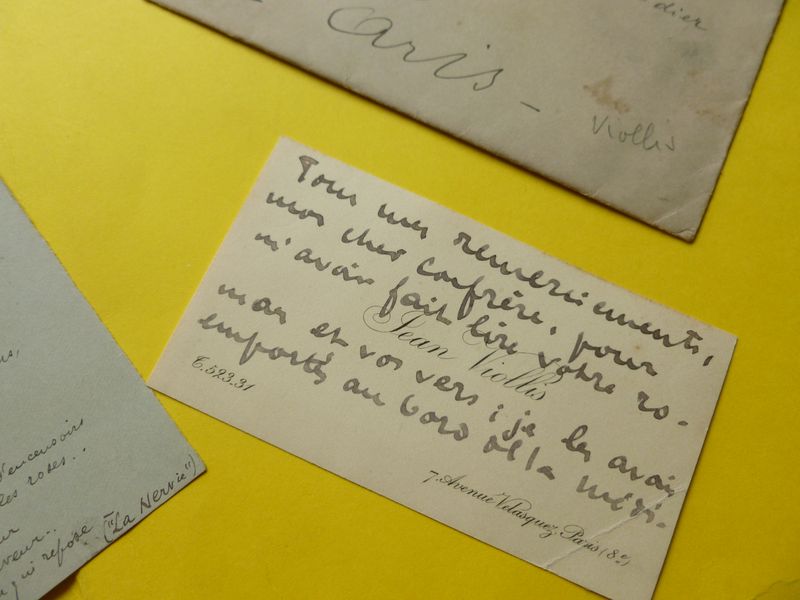 dier
Paris -
Viollis
Tous mes remerciements,
mon cher confrère, pour
m'avoir fait lire votre ro-
man et vos vers ; je les avais
emportés au bord de la médi-
Jean Viollis
T. 523-31
7, Avenue Velasquez, Paris (8e)
d'encensoirs
les roses..
qui repose ("La Nervie")